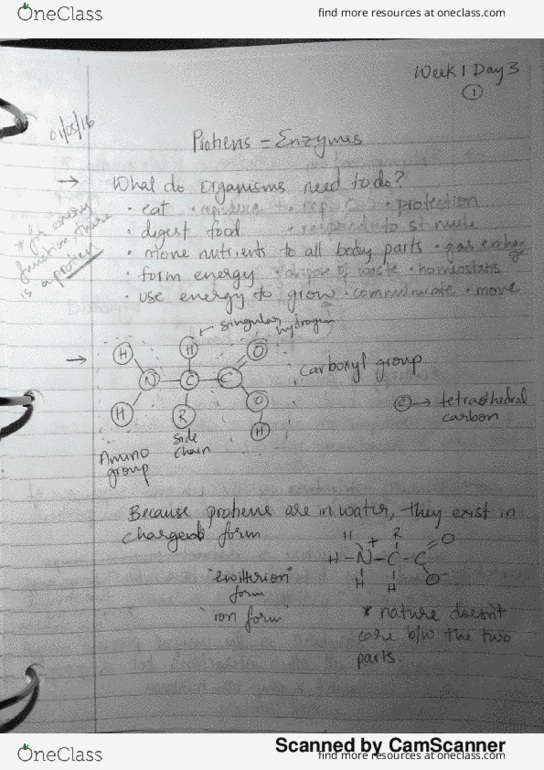 OneClass
find more resources at oneclass.com
Week 1 Day 3
1
01/05/16
Proteins = Enzymes
→ What do organisms need to do?
* for every function there is a protein
· eat · protection
· digest food · respond to stimuli
· move nutrients to all body parts · gas exchange
· form energy · dispose of waste · homeostasis
· use energy to grow · communicate · move
← singular hydrogen
→
H H O
N C C
H R O
H
Carboxyl group
C → tetrahedral carbon
side chain
Amino group
Because proteins are in water, they exist in
charged form
H + R O
H-N-C-C
H H O-
"zwitterion"
form
"ion form"
* nature doesn't
care b/w the two
parts
Scanned by CamScanner
OneClass
find more resources at oneclass.com